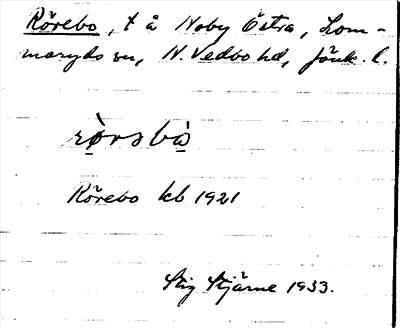 Rörebo, t å Noby Östra, Lom-
maryds sn, N. Vedbo hd, Jönk. l.
rò̤rsbò̤
Rörebo kb 1921
Stig Stjärne 1933.